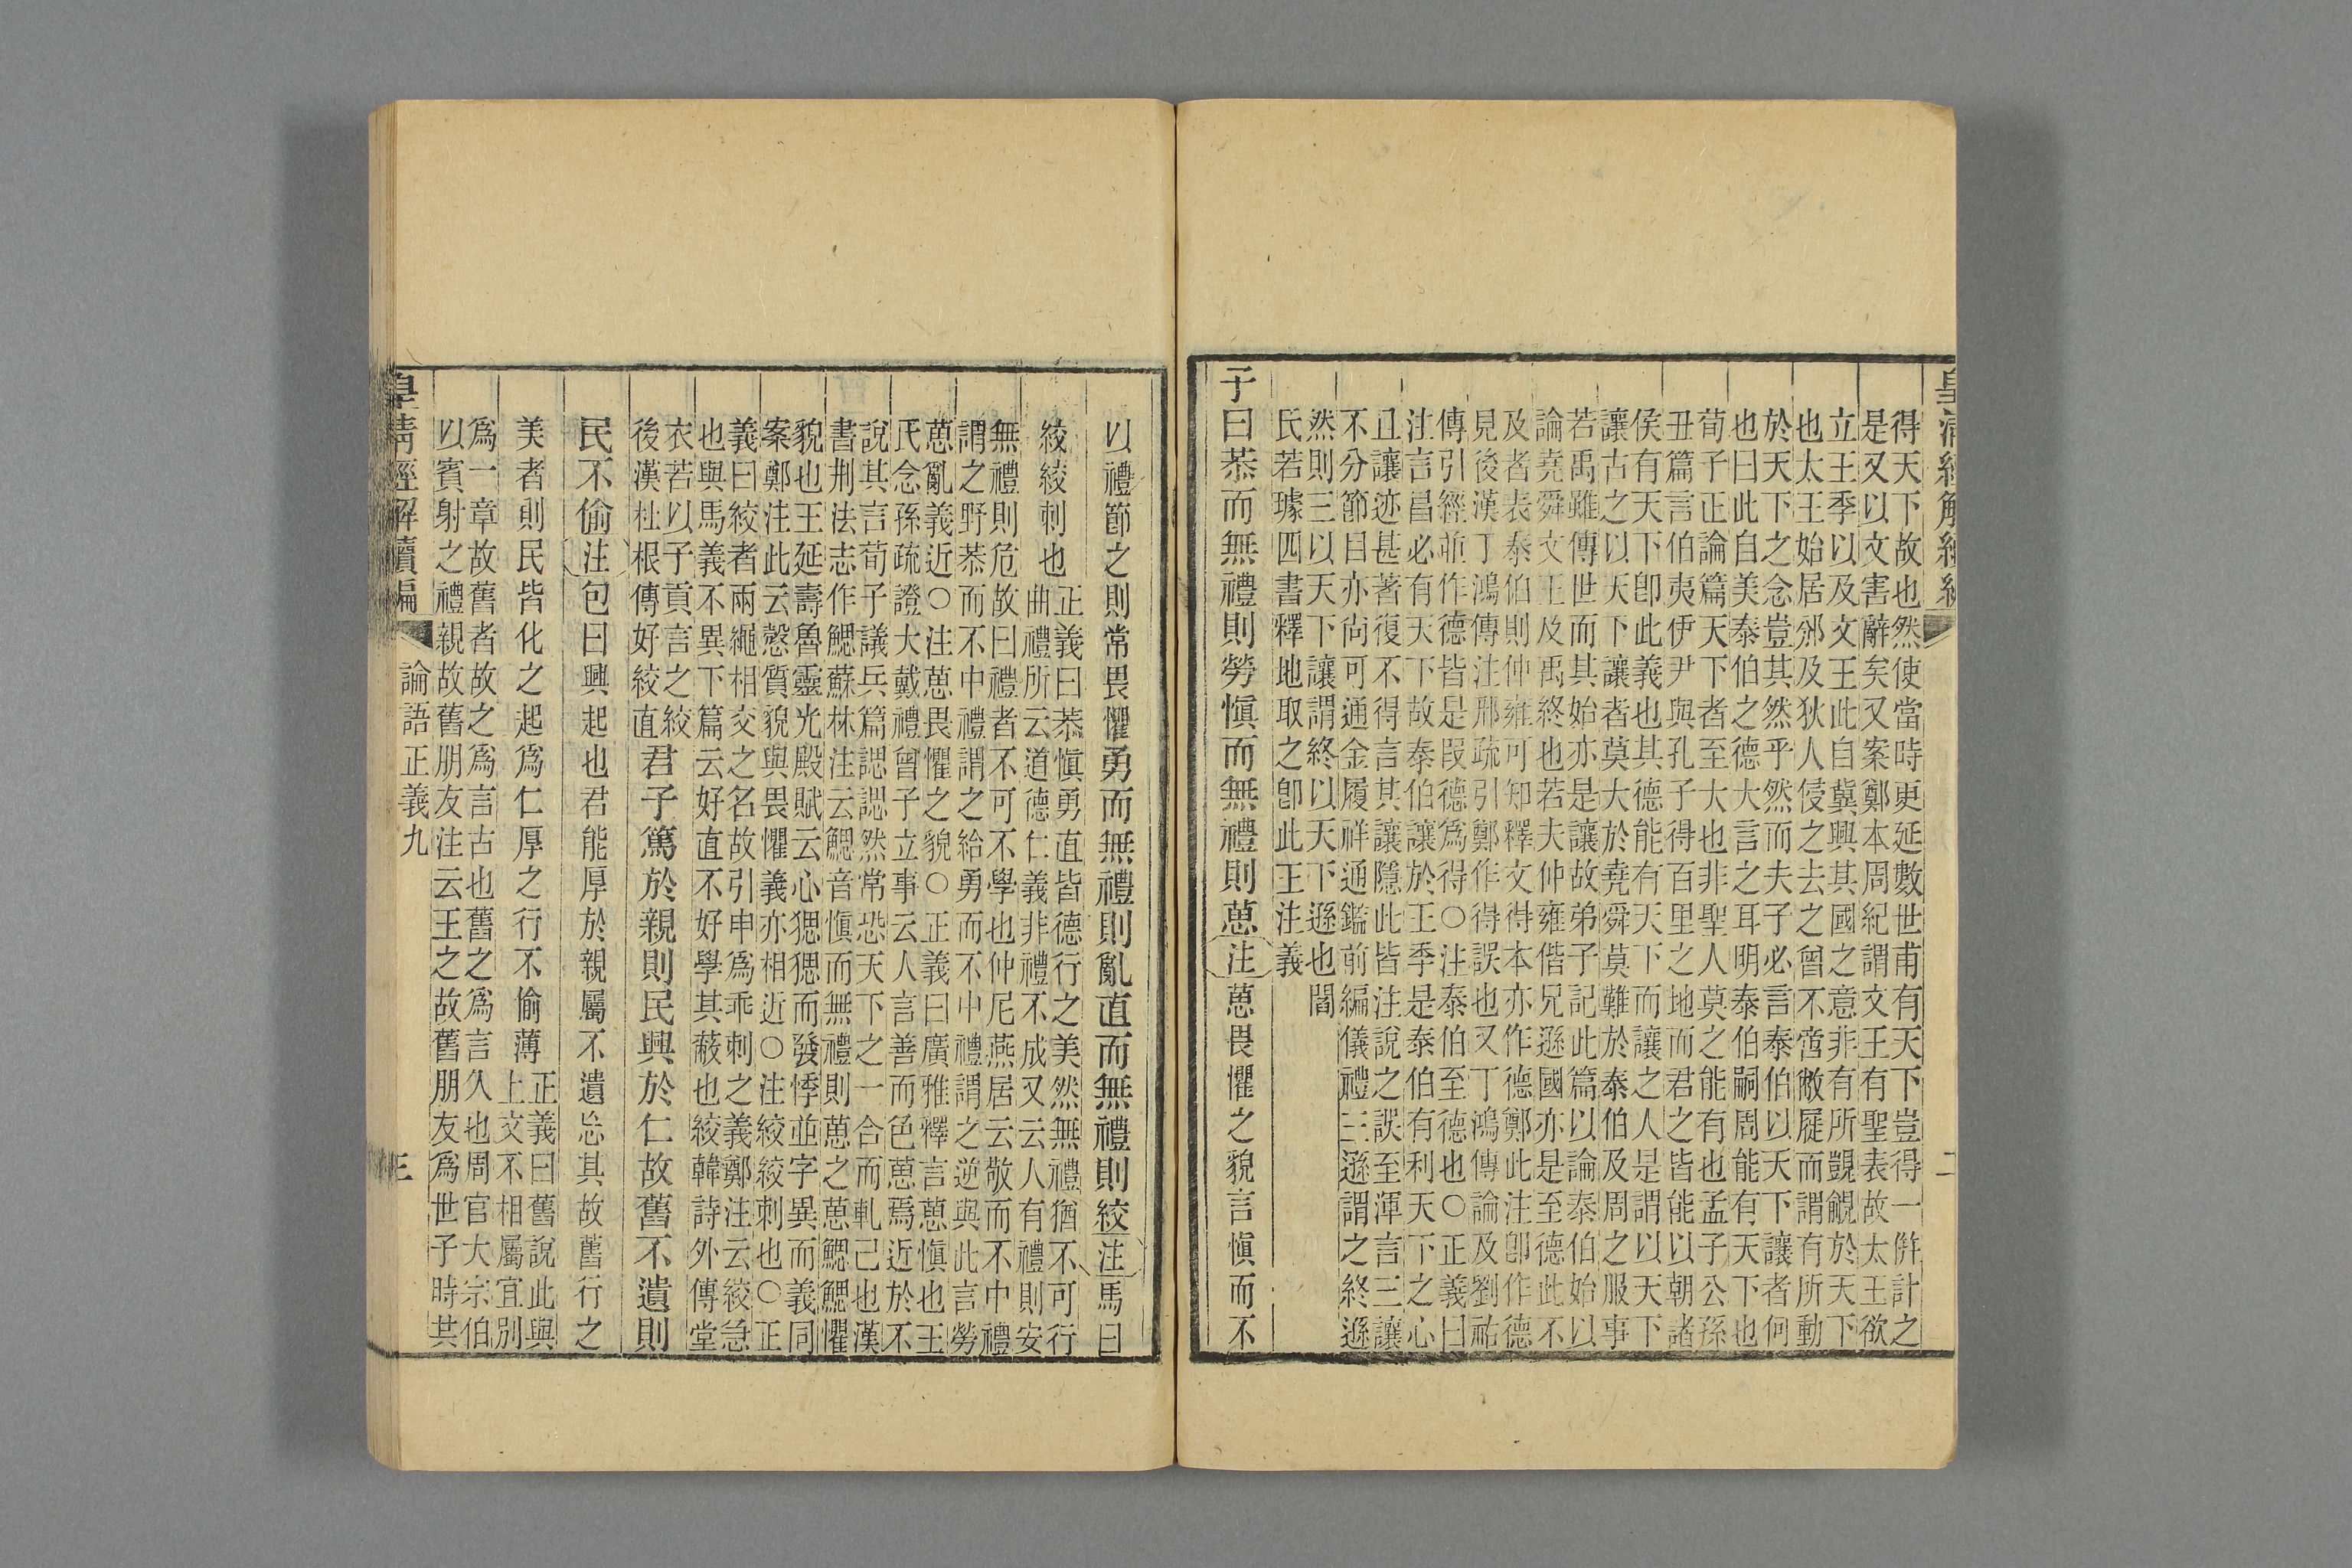 皇清經解續編
二
得天下故也然使當時更延數世甫有天下豈得一倂計之
是又以文害辭矣又案鄭本周紀謂文王有聖表故太王欲
立王季以及文王此自冀興其國之意非有所覬覦於天下
也太王始居邠及狄人侵之去之曾不啻敝屣而謂有所動
於天下之念豈其然乎然而夫子必言泰伯以天下讓者何
也曰此自美泰伯之德大言之耳明泰伯嗣周能有天下也
荀子正論篇天下者至大也非聖人莫之能有也孟子公孫
丑篇言伯夷伊尹與孔子得百里之地而君之皆能以朝諸
侯有天下卽此義也其德能有天下而讓之人是謂以天下
讓古之以天下讓者莫大於堯舜莫難於泰伯及周之服事
若禹雖傳世而其始亦是讓故弟子記此篇以論泰伯始以
論堯舜文王及禹終也若夫仲雍偕兄遜國亦是至德此不
及者表泰伯則仲雍可知釋文得本亦作德鄭此注卽作德
見後漢丁鴻傳注邢疏引鄭作得誤也又丁鴻傳論及劉祐
傳引經並作德皆是叚德爲得○注泰伯至德也○正義曰
注言昌必有天下故泰伯讓於王季是泰伯有利天下之心
且讓迹甚著復不得言其讓隱此皆注說之誤至渾言三讓
不分節目亦尙可通金履祥通鑑前編儀禮三遜謂之終遜
然則三以天下讓謂終以天下遜也閻
氏若璩四書釋地取之卽此王注義
子曰恭而無禮則勞愼而無禮則葸注葸畏懼之貌言愼而不
以禮節之則常畏懼勇而無禮則亂直而無禮則絞注馬曰
絞絞刺也
正義曰恭愼勇直皆德行之美然無禮猶不可行
曲禮所云道德仁義非禮不成又云人有禮則安
無禮則危故曰禮者不可不學也仲尼燕居云敬而不中禮
謂之野恭而不中禮謂之給勇而不中禮謂之逆與此言勞
葸亂義近○注葸畏懼之貌○正義曰廣雅釋言葸愼也王
氏念孫疏證大戴禮曾子立事云人言善而色葸焉近於不
說其言荀子議兵篇諰諰然常恐天下之一合而軋己也漢
書刑法志作鰓蘇林注云鰓音愼而無禮則葸之葸鰓鰓懼
貌也王延壽魯靈光殿賦云心猥猥而發悸並字異而義同
案鄭注此云愨質貌與畏懼義亦相近○注絞絞刺也○正
義曰絞者兩繩相交之名故引申爲乖刺之義鄭注云絞急
也與馬義不異下篇云好直不好學其蔽也絞韓詩外傳堂
衣若以子貢言之絞
後漢杜根傳好絞直
君子篤於親則民興於仁故舊不遺則
民不偷注包曰興起也君能厚於親屬不遺忘其故舊行之
美者則民皆化之起爲仁厚之行不偷薄
正義曰舊說此與
上文不相屬宜別
爲一章故舊者故之爲言古也舊之爲言久也周官大宗伯
以賓射之禮親故舊朋友注云王之故舊朋友爲世子時其
皇清經解續編
論語正義九
三